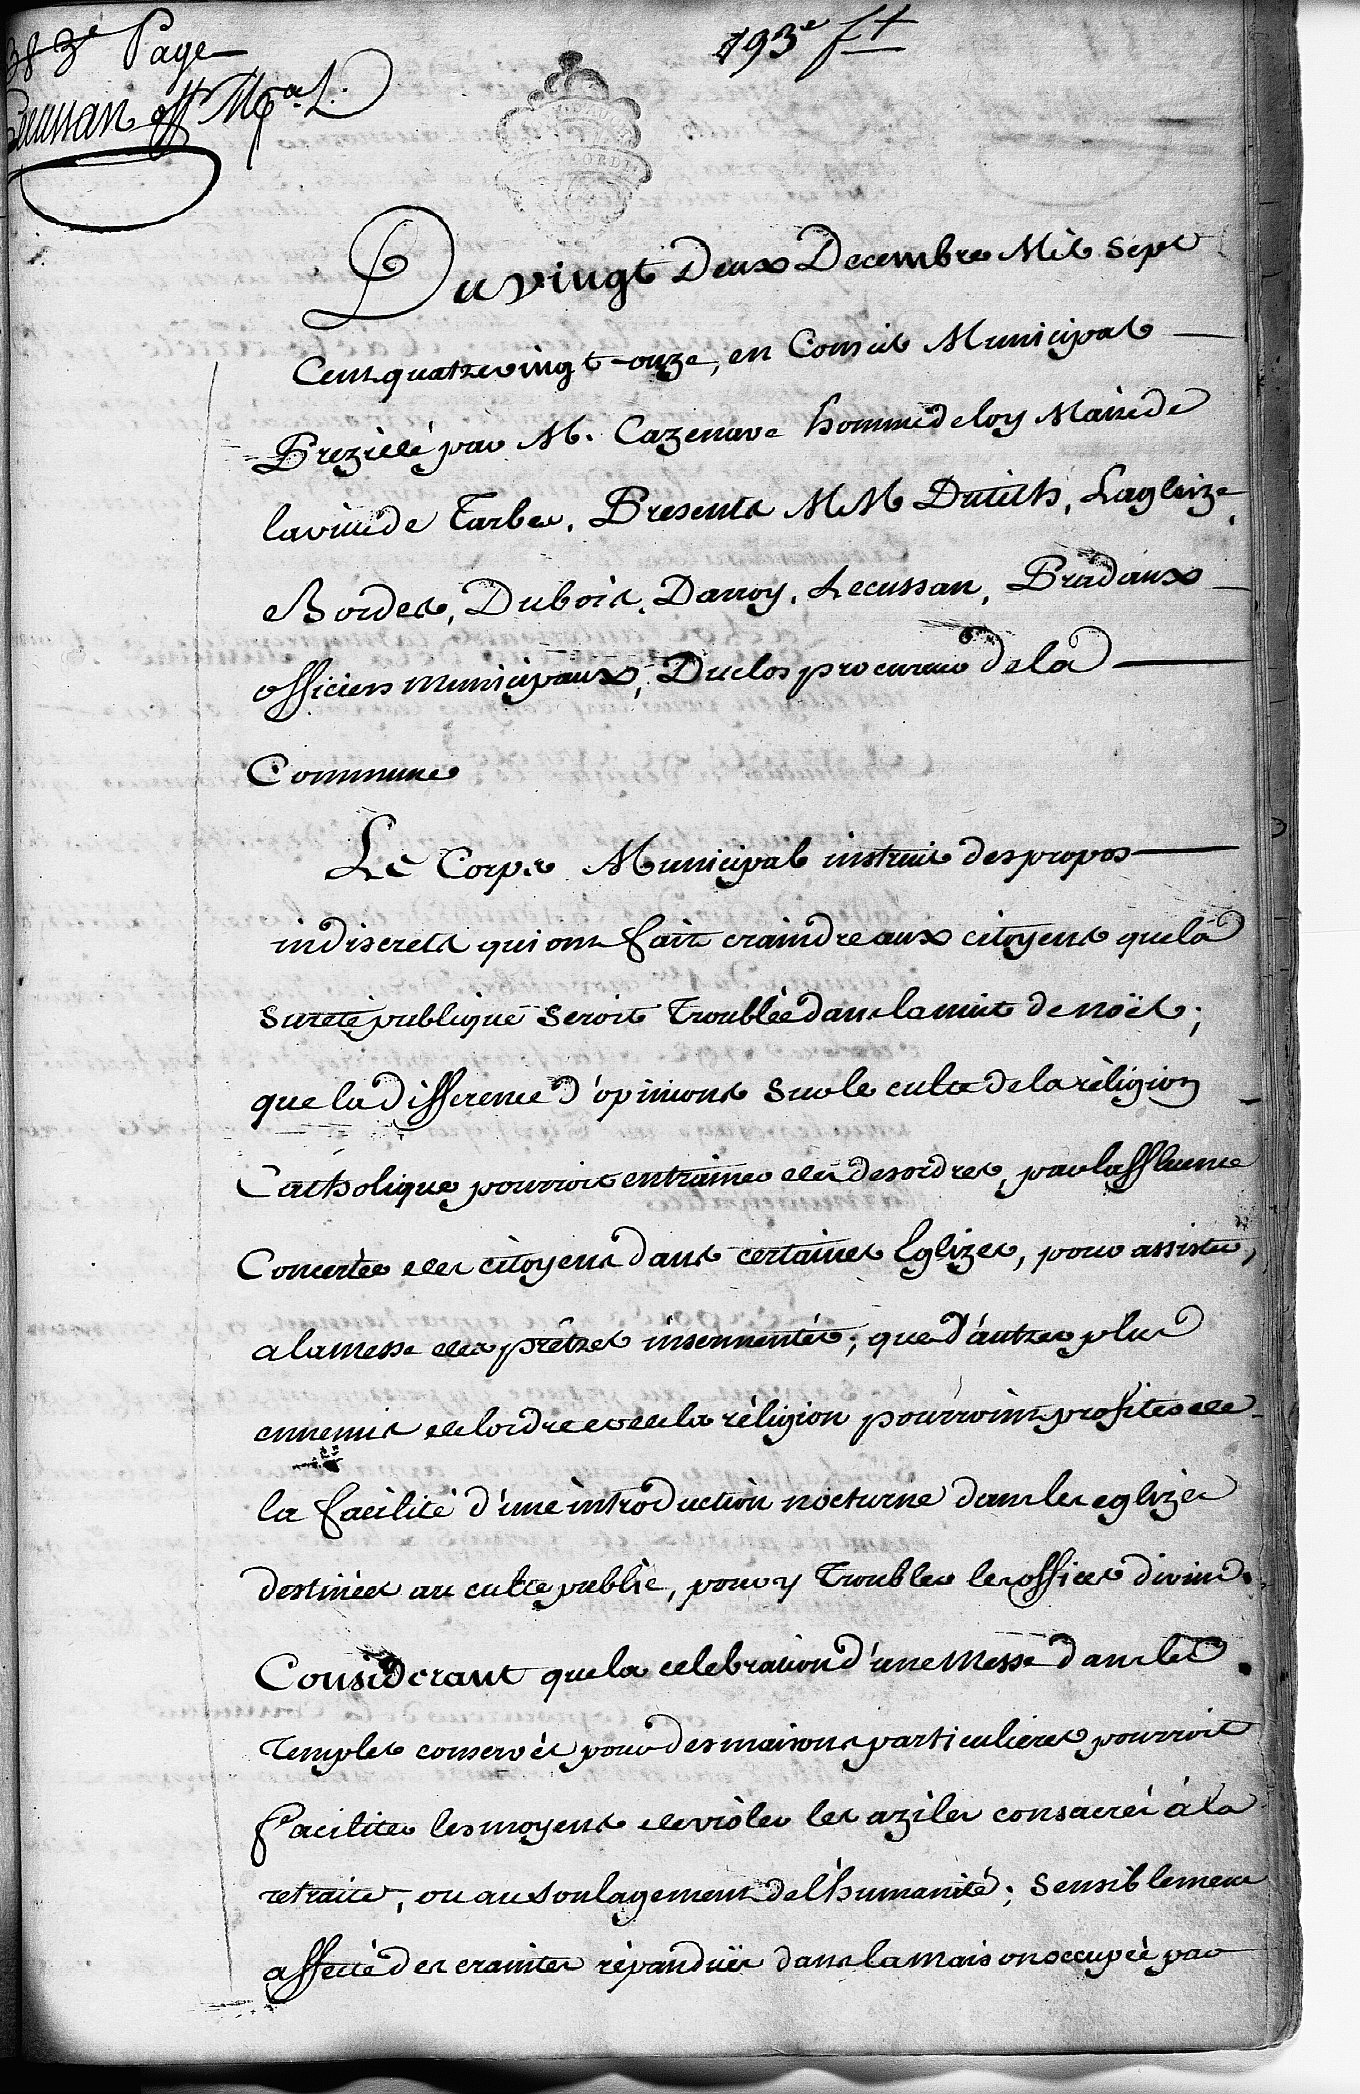 383e Page
193e ft
Lecussan off Mpal.
Du vingt Deux Decembre Mil Sept
Cent quatrevingt-onze, en Conseil Municipal
Prezidé par M. Cazenave homme de loy Maire de
la ville de Tarbes, Presents MM Dutilh, Lagleize
Bordes, Dubois, Darroy, Lecussan, Pradaux
officiers municipaux, Duclos procureur de la
Commune
Le Corps Municipal instruit des propos
indiscrets qui ont fait craindre aux citoyens que la
sureté publique seroit Troublée dans la nuit de noël;
que la difference d'opinions sur le culte de la réligion
Catholique pourroit entrainer des desordres, par laffluence
Concertée des citoyens dans certaines Eglizes, pour assister,
a la messe des prêtres insermentés; que d'autres plus
ennemis de lordre et de la réligion pourroint profiter de
la facilité d'une introduction nocturne dans les eglizes
destinées au culte public, pour y Troubler les offices divins.
Considerant que la celebration d'une Messe dans les
Temples conservés pour des maisons particulieres pourroit
faciliter les moyens de violer les aziles consacrés à la
retraite, ou au soulagement de l'humanité; sensiblement
affecté des craintes répandues dans la maison occupée par